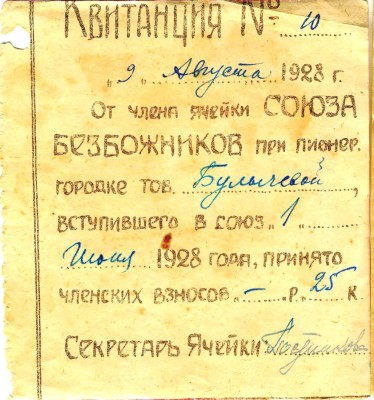 Квитанция № 10
„9„ Августа 1928 г.
От члена ячейки СОЮЗА
БЕЗБОЖНИКОВ при пионер.
городке тов. Булычевой,
вступившего в союз „1„
1928 года, принято
членских взносов „–„ р. 25 к.
Секретарь Ячейки